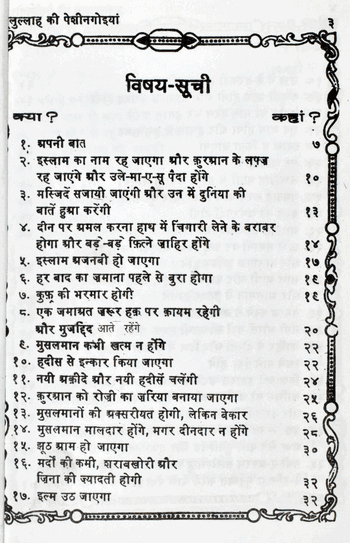 लुल्लाह की पेशीनगोइयां ३
विषय-सूची
क्या ? कहां ?
१. अपनी बात ७
२. इस्लाम का नाम रह जाएगा और क़ुरआन के लफ़्ज़
रह जाएंगे और उले-मा-ए-सू पैदा होंगे १०
३. मस्जिदें सजायी जाएंगी और उन में दुनिया की
बातें हुआ करेंगी १३
४. दीन पर अमल करना हाथ में चिंगारी लेने के बराबर
होगा और बड़े-बड़े फ़ित्ने ज़ाहिर होंगे १४
५. इस्लाम अजनबी हो जाएगा १७
६. हर बाद का ज़माना पहले से बुरा होगा १९
७. कुफ़्र की भरमार होगी १९
८. एक जमाअत ज़रूर हक़ पर क़ायम रहेगी
और मुजद्दिद आते रहेंगे २०
९. मुसलमान कभी खत्म न होंगे २२
१०. हदीस से इन्कार किया जाएगा २२
११. नयी अक़ीदे और नयी हदीसें चलेंगी २४
१२. क़ुरआन को रोज़ी का ज़रिया बनाया जाएगा २५
१३. मुसलमानों की अक्सरीयत होगी, लेकिन बेकार २६
१४. मुसलमान मालदार होंगे, मगर दीनदार न होंगे २८
१५. झूठ आम हो जाएगा ३०
१६. मर्दों की कमी, शराबखोरी और
ज़िना की ज़्यादती होगी ३२
१७. इल्म उठ जाएगा ३२